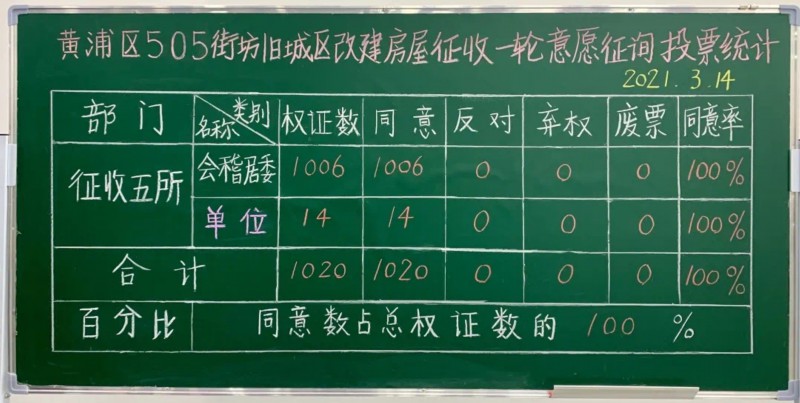 黄浦区505街坊旧城区改建房屋征收一轮意愿征询投票统计
2021.3.14
部门 类别 名称 权证数 同意 反对 弃权 废票 同意率
征收五所 会稽居委 1006 1006 0 0 0 100%
单位 14 14 0 0 0 100%
合计 1020 1020 0 0 0 100%
百分比 同意数占总权证数的 100 %